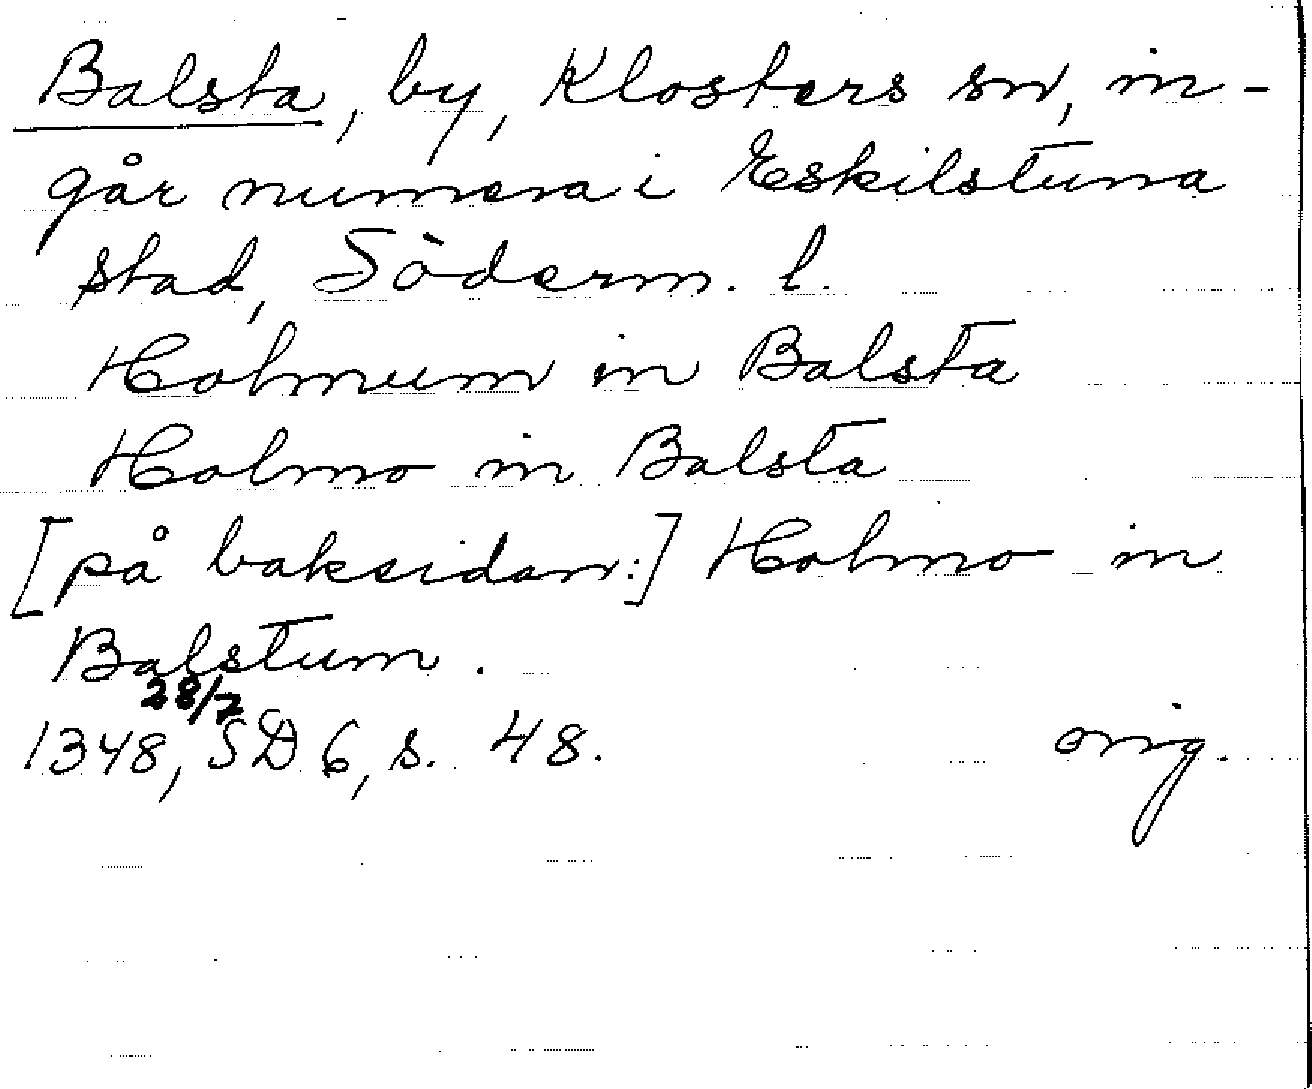 Balsta, by, Klosters sn, in-
går numera i Eskilstuna
stad, Söderm. l.
Holmum in Balsta
Holmo in Balsta
[på baksidan:] Holmo in
Balstum.
28/7
1348, SD 6, s. 48. orig.